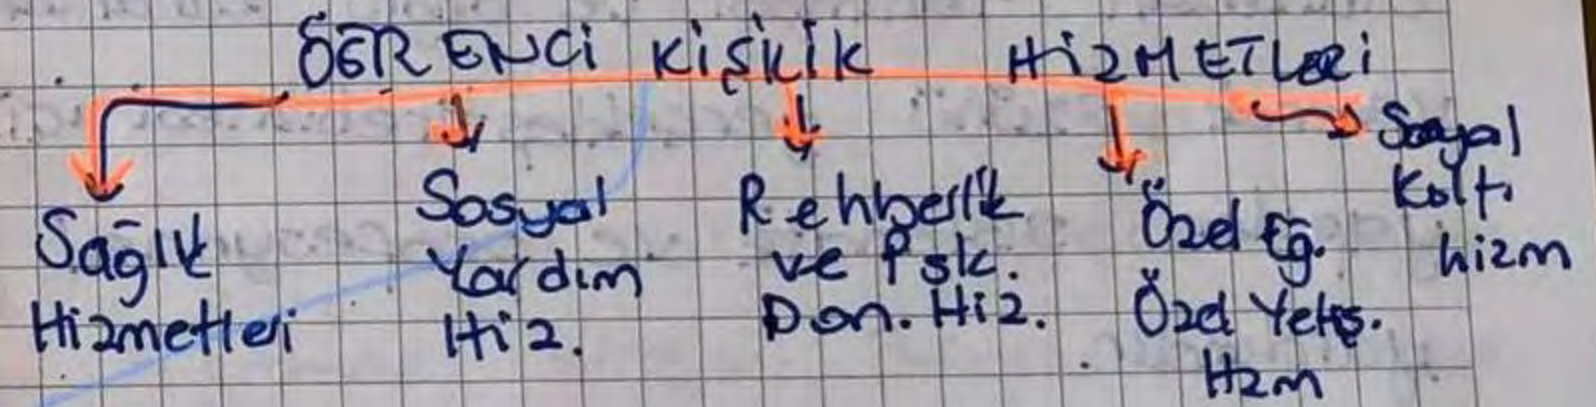 ÖĞRENCİ KİŞİLİK HİZMETLERİ
Sağlık
Hizmetleri
Sosyal
Yardım
Hiz.
Rehberlik
ve Psk.
Dan. Hiz.
Özel Eğ.
Özel Yetiş.
Hzm
Sosyal
Kült.
hizm